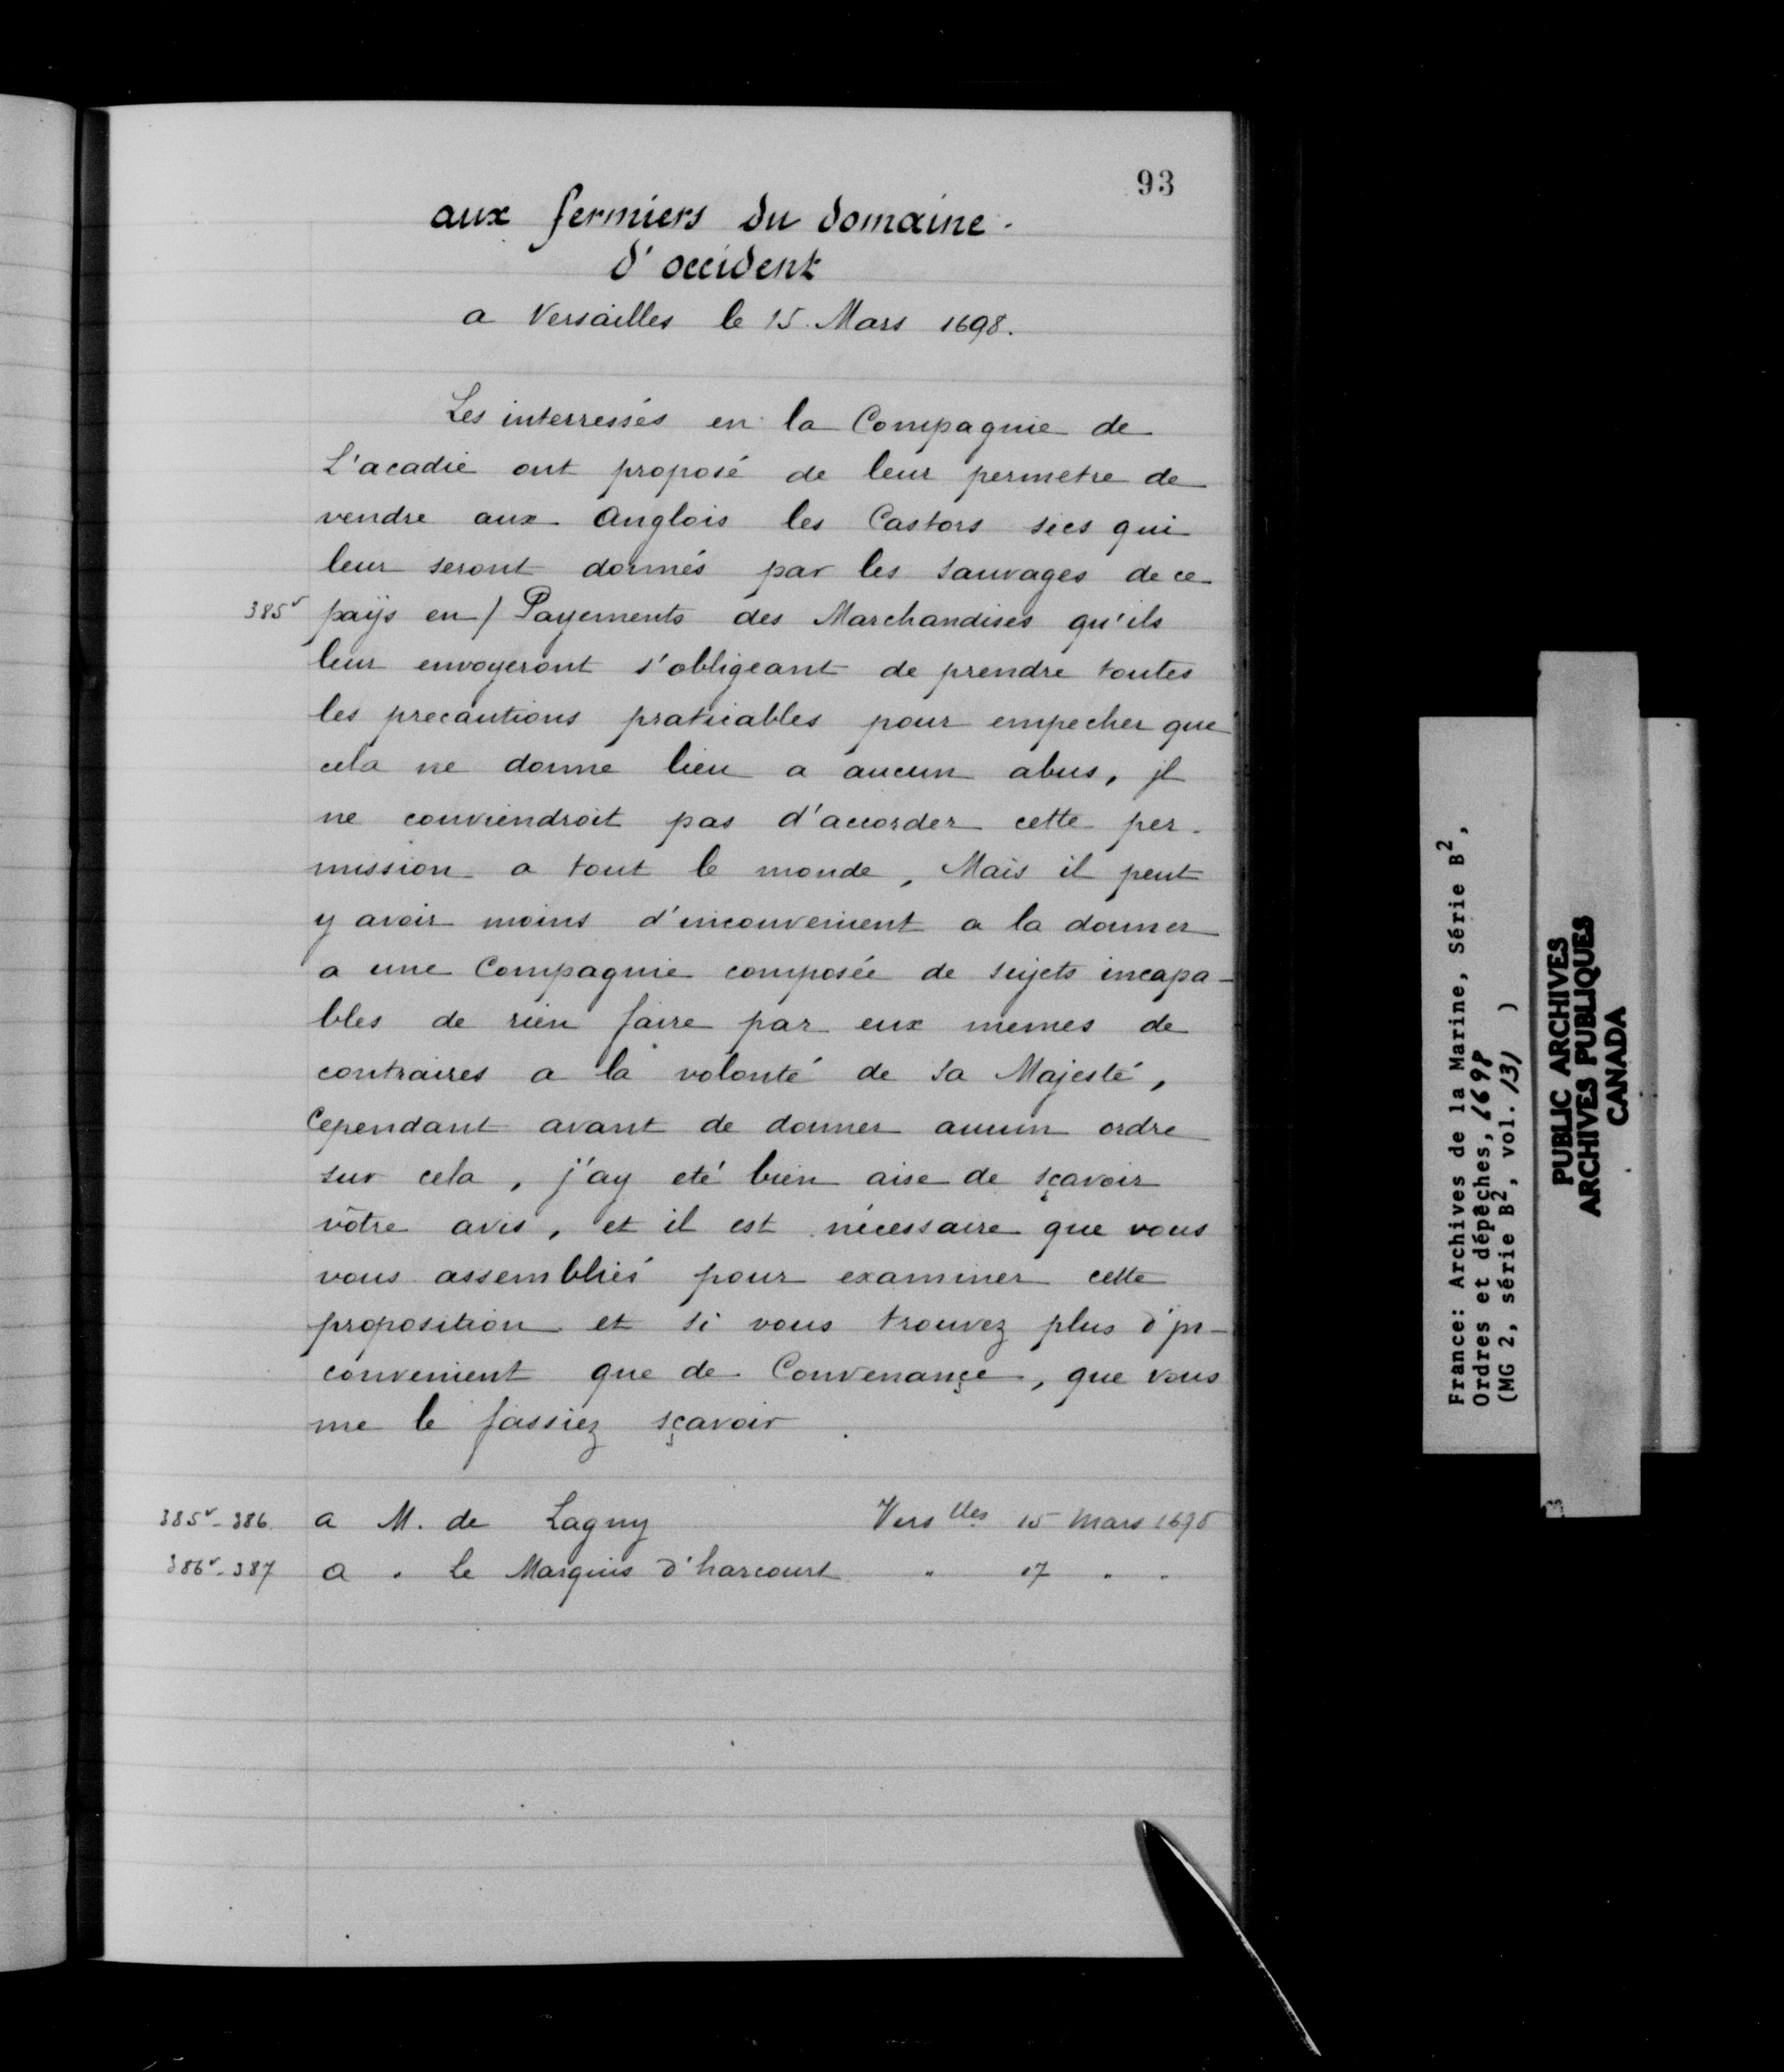 93
aux fermiers du domaine
d'occident
a Versailles le 15 Mars 1698.
Les interressés en la Compagnie de
L'acadie ont proposé de leur permetre de
vendre aux Anglois les Castors secs qui
leur seront donnés par les sauvages de ce
385v païs en / Payements des Marchandises qu'ils
leur envoyeront s'obligeant de prendre toutes
les precautions praticables pour empecher que
cela ne donne lieu a aucun abus, jl
ne conviendroit pas d'accorder cette per-
mission a tout le monde, Mais il peut
y avoir moins d'inconvenient a la donner
a une Compagnie composée de sujets incapa-
bles de rien faire par eux memes de
contraires a la volonté de Sa Majesté,
Cependant avant de donner aucun ordre
sur cela, j'ay eté bien aise de sçavoir
vôtre avis, et il est nécessaire que vous
vous assembliés pour examiner cette
proposition et si vous trouvez plus d'jn-
convenient que de Convenançe, que vous
me le fassiez sçavoir.
385v-386 a M. de Lagny Vers lles 15 mars 1698
386v-387 a " le Marquis d'harcourt " 17 " "
France: Archives de la Marine, Série B2,
Ordres et dépêches, 1698
(MG 2, série B2, vol. 131 )
PUBLIC ARCHIVES
ARCHIVES PUBLIQUES
CANADA